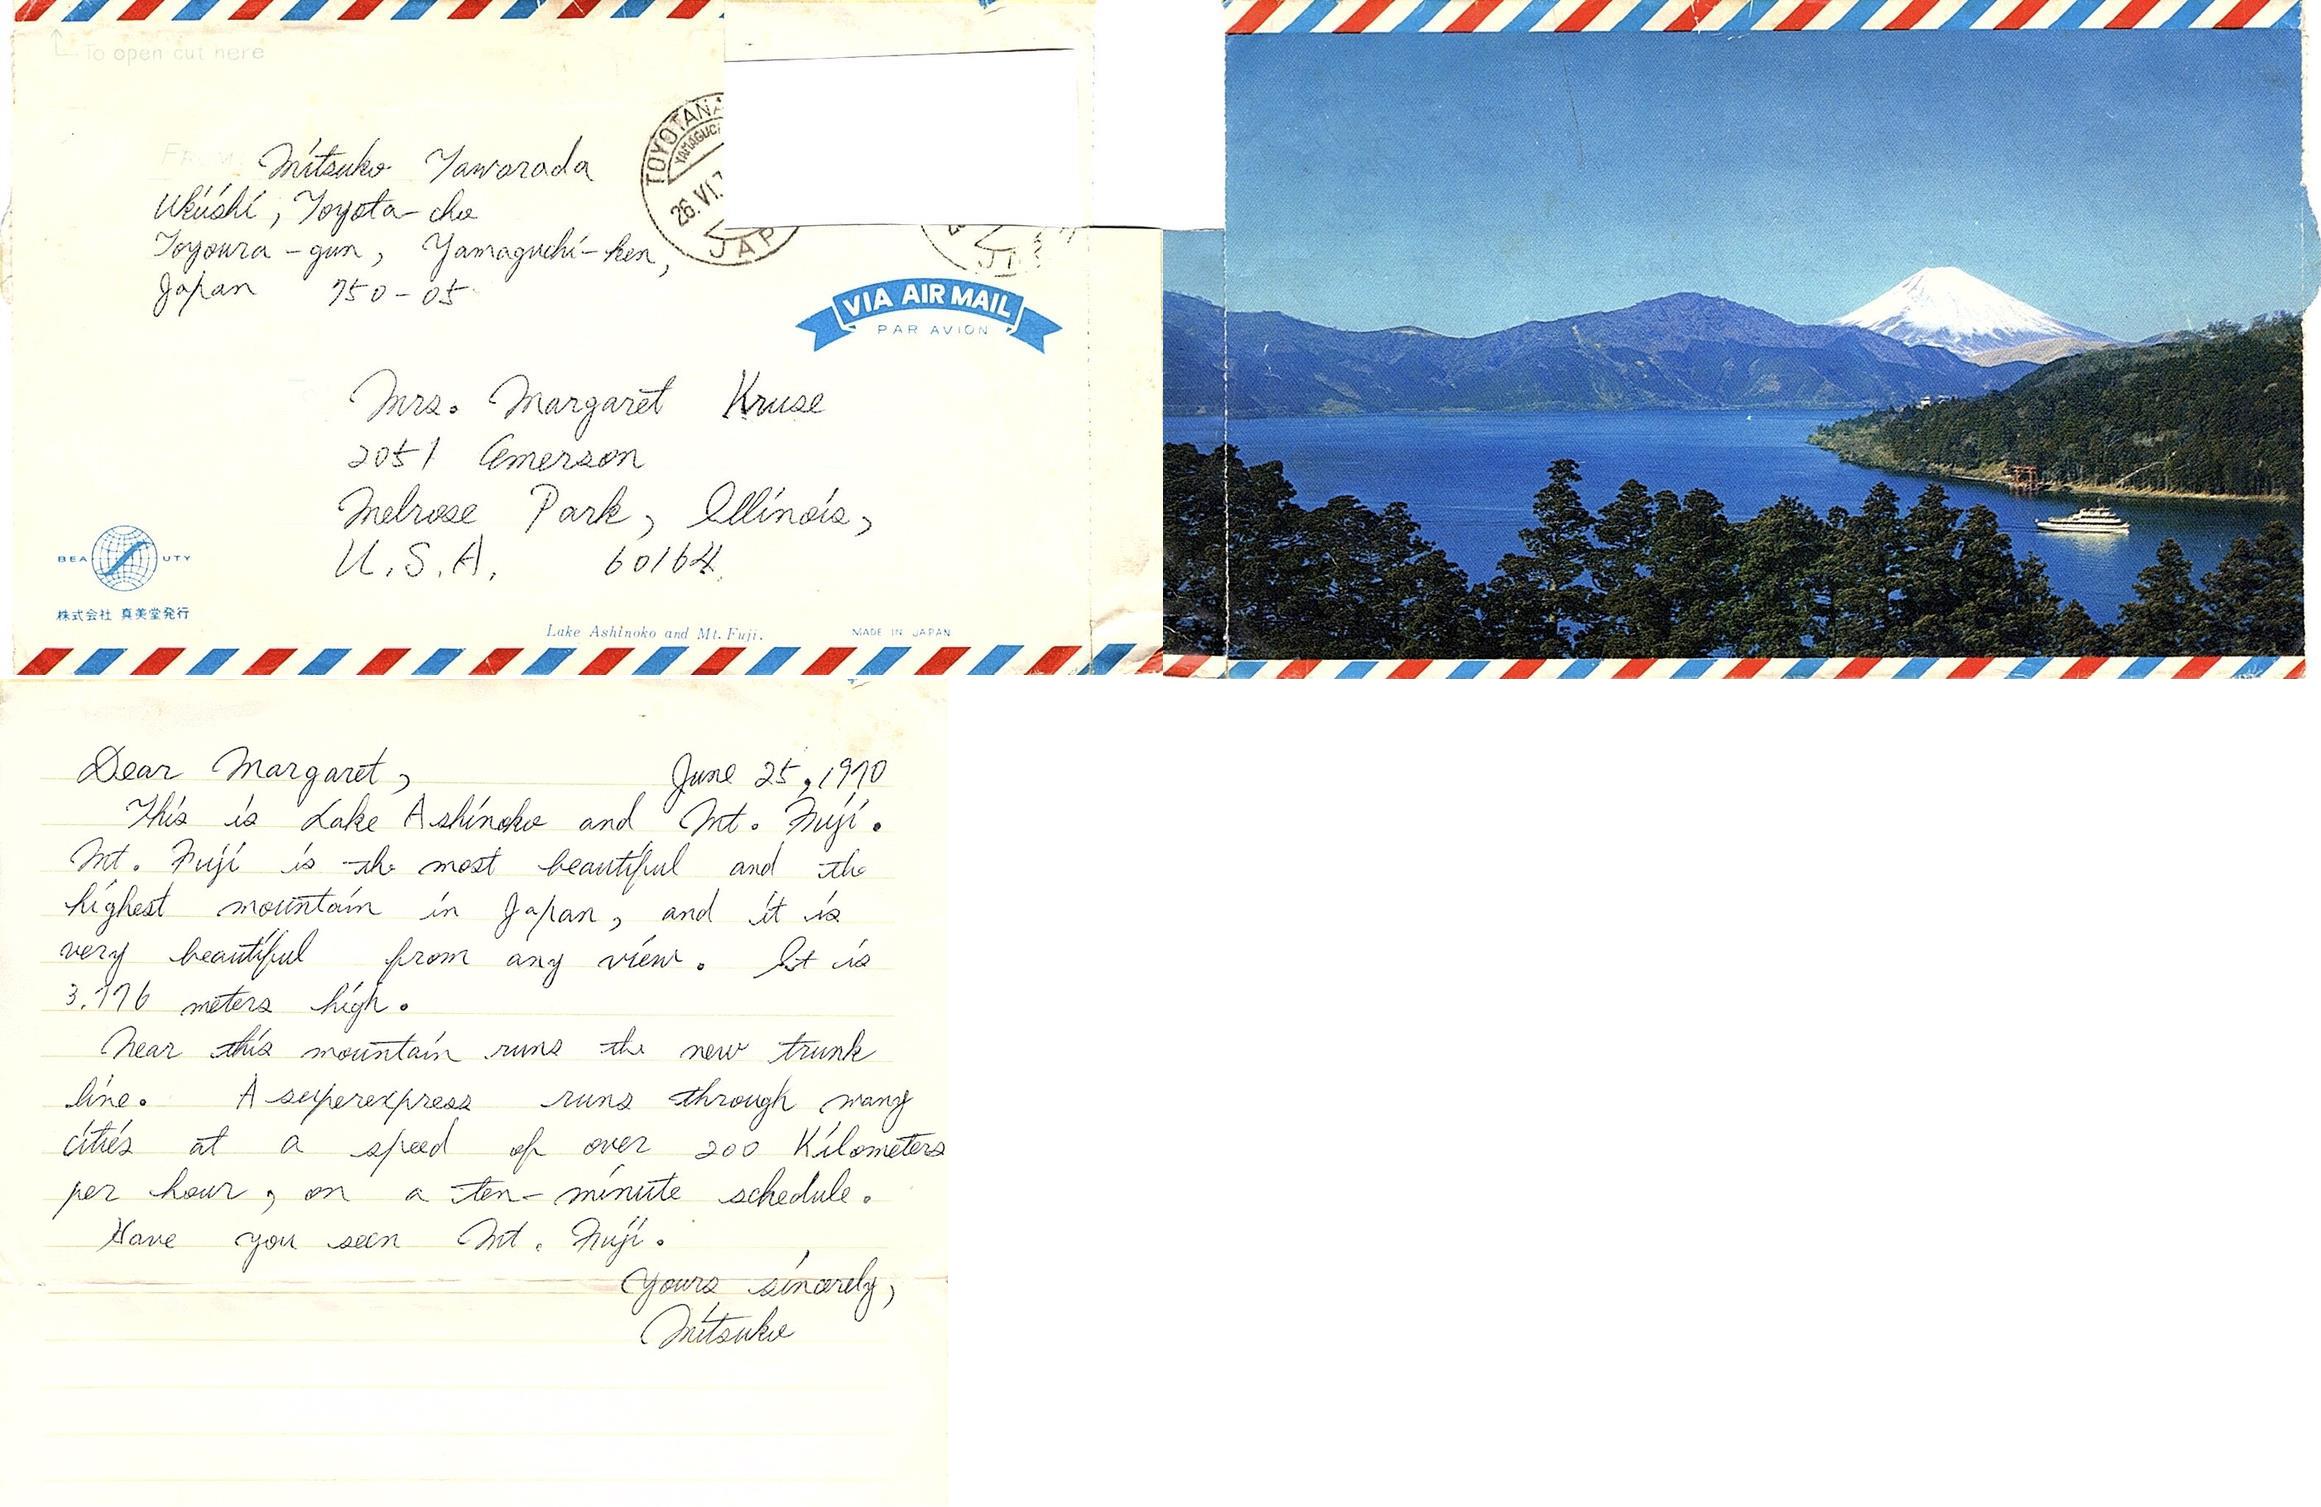 To open cut here
FROM
Mitsuko Yawarada
Ukiishi, Toyota-cho
Toyoura-gun, Yamaguchi-ken,
Japan 750-05
TOYOTANA
YAMAGUC
26.VI.7
JAP
VIA AIR MAIL
PAR AVION
Mrs. Margaret Kruse
2051 Emerson
Melrose Park, Illinois,
U.S.A. 60164
BEAUTY
株式会社 真美堂発行
Lake Ashinoko and Mt. Fuji.
MADE IN JAPAN
Dear Margaret, June 25, 1970
This is Lake Ashinoko and Mt. Fuji.
Mt. Fuji is the most beautiful and the
highest mountain in Japan, and it is
very beautiful from any view. It is
3.776 meters high.
Near this mountain runs the new trunk
line. A superexpress runs through many
cities at a speed of over 200 Kilometers
per hour, on a ten-minute schedule.
Have you seen Mt. Fuji.
Yours sincerely,
Mitsuko